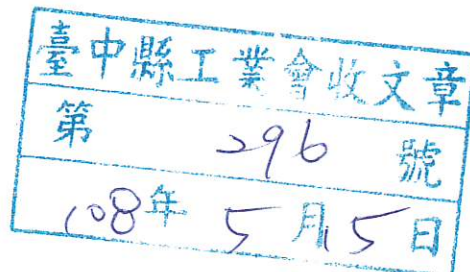 臺中縣工業會收文章
第 296 號
108年 5月15日